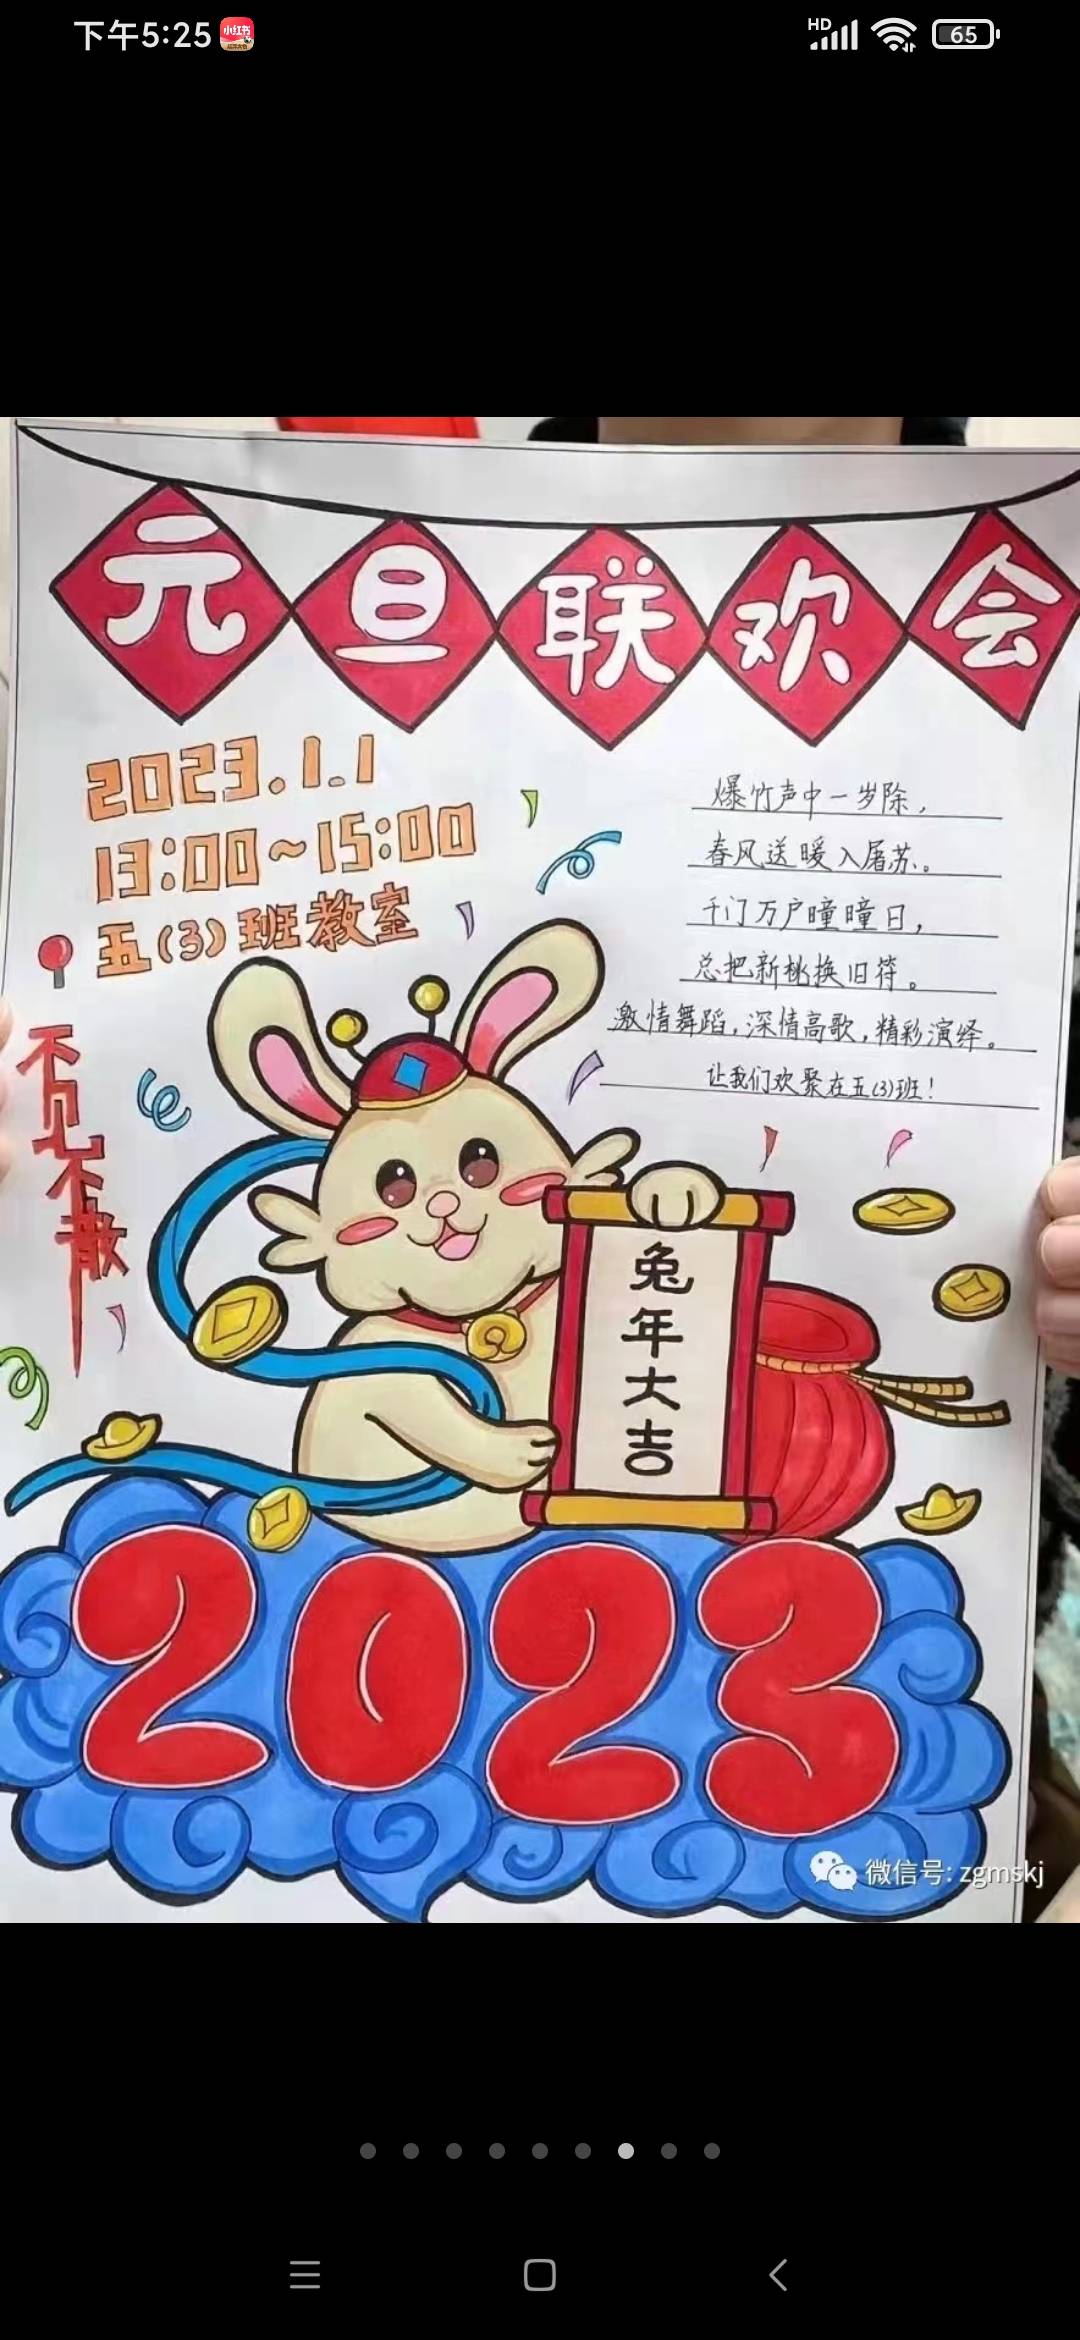 下午5:25
小红书
HD
65
元旦联欢会
2023.1.1
13:00~15:00
五(3)班教室
不见不散
爆竹声中一岁除,
春风送暖入屠苏。
千门万户曈曈日,
总把新桃换旧符。
激情舞蹈,深情高歌,精彩演绎。
让我们欢聚在五(3)班!
兔年大吉
2023
微信号: zgmskj